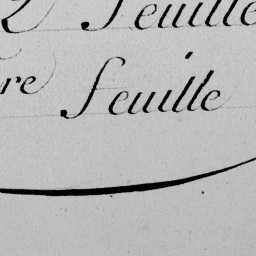 2 Feuille
re Feuille